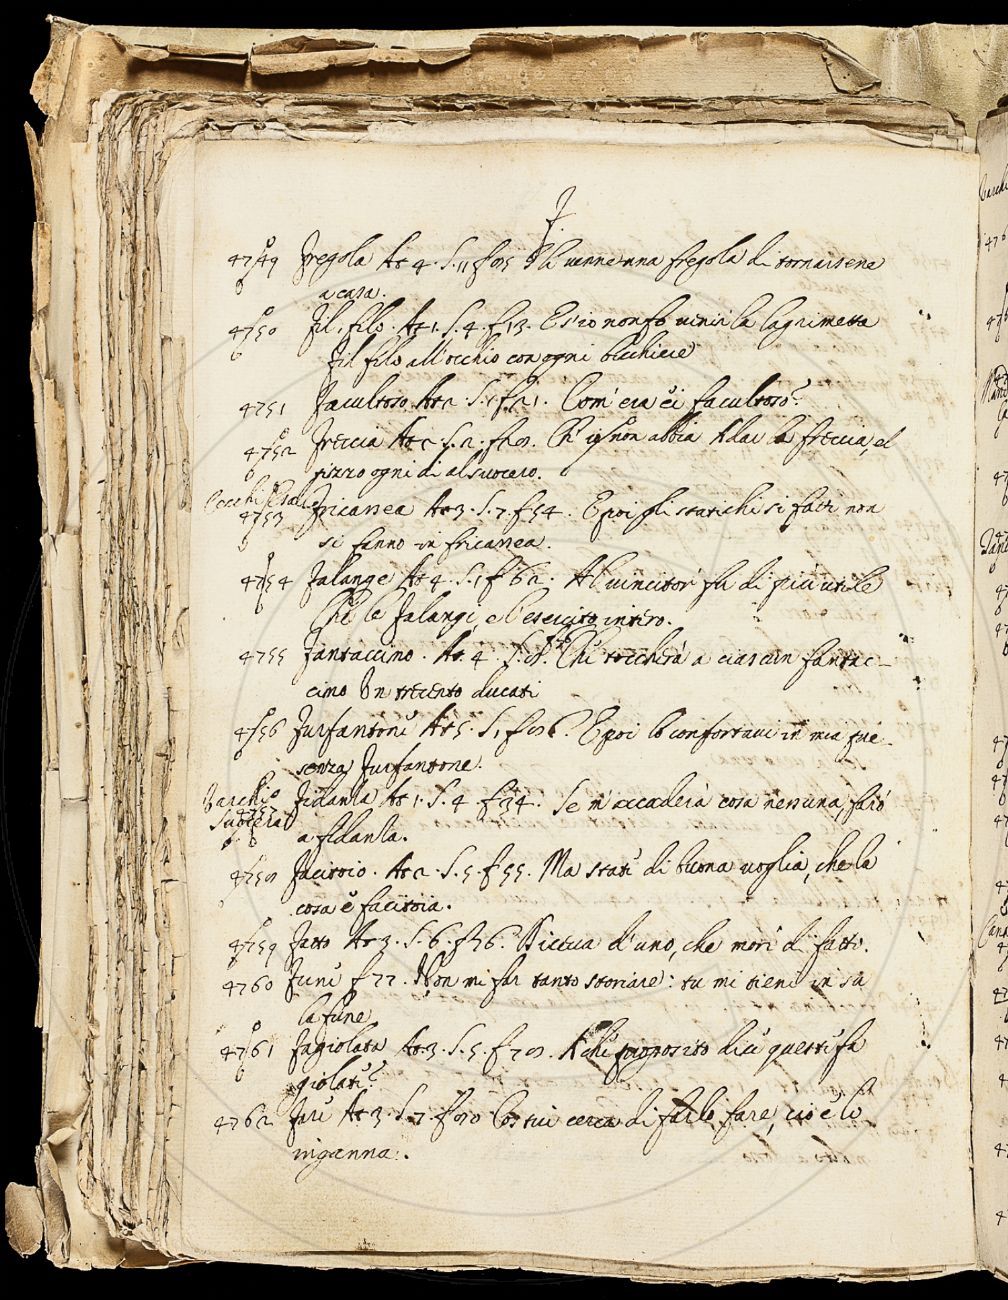 F.
4749 Fregola At 4. S. 11 f. 95 Gli venne una fregola di tornarsene
a casa.
4750 Fil, filo. At 1. S. 4. f. 13. Es'io non fo venir la lagrimetta
Fil filo all'occhio con ogni bicchiere
4751 Facultoso At 2 S. 1 f. 21. Com' era ei facultoso?
4752 Freccia At 2. S. 2. f. 29. Ch' non abbia A dar la freccia, el
pizzo ogni dì al suocero.
Cecchi
4753 Fricassea At 3. S. 7. f. 54. E poi gli statichi si fatti non
si fanno in fricassea.
4754 Falange At 4. S. 1 f. 62. Al vincitor fu di più utile
Che le Falangi, e l'esercito intiro.
4755 Fantaccino. At. 4. S. Chi toccherà a ciascun fantac-
cino Un trecento ducati
4756 Furfantone At 5. S. 1 f. 96. E poi lo confortavi in mia pre-
senza, Furfantone.
4757 Fidanza At 1. S. 4. f. 34. Se n'accaderà cosa nessuna, farò
Suocera
a fidanza.
4758 Facitoio. At 2. S. 5. f. 55. Ma state di buona voglia, che la
cosa è facitoia.
4759 Fatto At 3. S. 6. f. 76. d'uno, che morì di fatto.
4760 Fune f. 77. Non mi far tanto storiare: tu mi tieni in su
la fune
4761 Fagiolata At. 3. S. 5. f. 79. A che proposito dici queste fa
giolate?
4762 Fare At 3. S. 7. f. 90 Costui cerca di farlo fare, cioè lo
inganna.